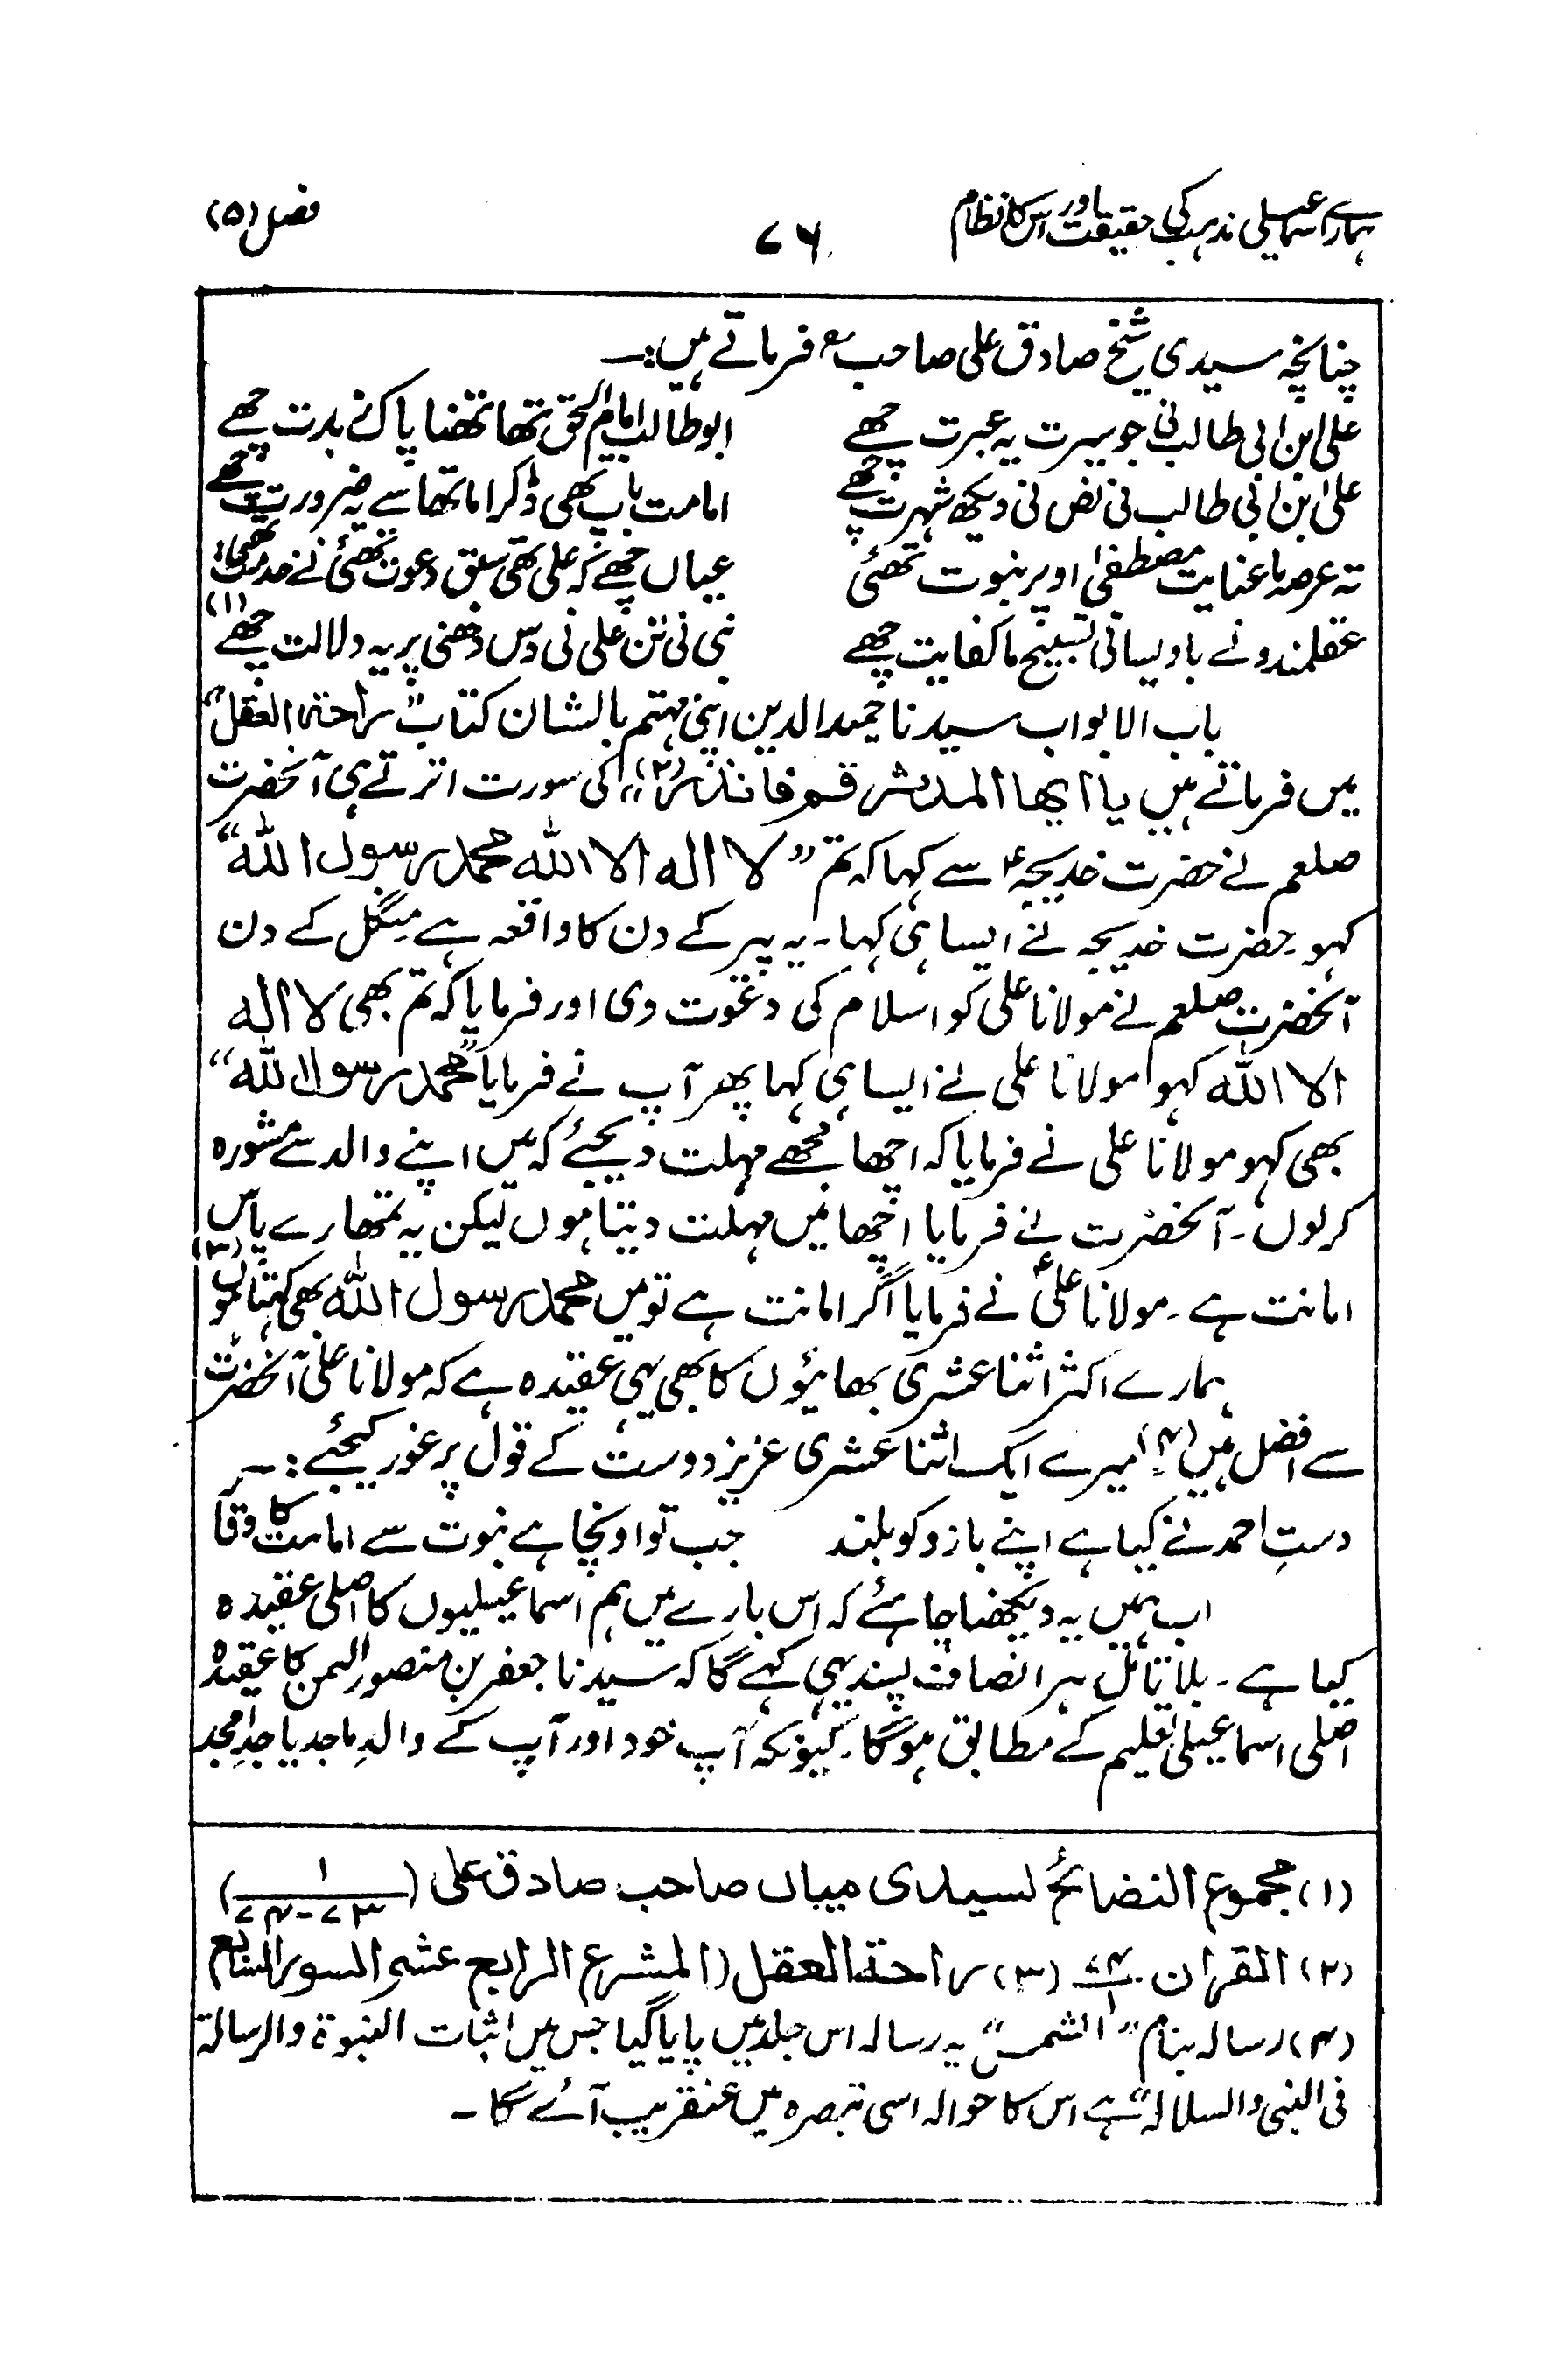 ہمارے اسماعیلی مذہب کی حقیقت اور اس کا نظام ۷۶ فصل (۵)
چنانچہ سیدی شیخ صادق علی صاحب فرماتے ہیں:۔
علی ابن ابی طالب نی جو سیرت یہ عبرت چھے ابوطالب امام الحق تھا تھنا پاک نے بدت چھے
علی ابن ابی طالب نی نص نی دیکھ شہرت چھے امامت باپ بھی ڈکرا ما تھا سے یہ ضرورت چھے
تہ عرصہ ما عنایت مصطفیٰ اوپر نبوت تھئی عیاں چھے کہ علی تھی سبق دعوت تھئی نے
عقلمندو نے باویسانی تسبیح ما کفایت چھے نبی نی تن علی نی دس دھنی پر یہ دلالت چھے (۱)
باب الابواب سیدنا حمید الدین اپنی مہتم بالشان کتاب "راحۃ العقل"
میں فرماتے ہیں یا ایھا المدثر قم فانذر (۲)" کی سورت اترتے ہی آنحضرت
صلعم نے حضرت خدیجہؑ سے کہا کہ تم "لا الہ الا اللہ محمد رسول اللہ"
کہو۔ حضرت خدیجہ نے ایسا ہی کہا۔ یہ پیر کے دن کا واقعہ ہے منگل کے دن
آنحضرت صلعم نے مولانا علی کو اسلام کی دعوت دی اور فرمایا کہ تم بھی لا الہ
الا اللہ کہو مولانا علی نے ایسا ہی کہا پھر آپ نے فرمایا "محمد رسول اللہ"
بھی کہو مولانا علی نے فرمایا کہ اچھا مجھے مہلت دیجئے کہ میں اپنے والد سے مشورہ
کر لوں۔ آنحضرت نے فرمایا اچھا میں مہلت دیتا ہوں لیکن یہ تمھارے پاس
امانت ہے۔ مولانا علیؑ نے فرمایا اگر امانت ہے تو میں محمد رسول اللہ بھی کہتا ہوں (۳)
ہمارے اکثر اثنا عشری بھائیوں کا بھی یہی عقیدہ ہے کہ مولانا علی آنحضرت
سے افضل ہیں (۴) میرے ایک اثنا عشری عزیز دوست کے قول پر غور کیجئے:۔
دستِ احمد نے کیا ہے اپنے بازو کو بلند جب تو اونچا ہے نبوت سے امامت کا وقا
اب ہمیں یہ دیکھنا چاہئے کہ اس بارے میں ہم اسماعیلیوں کا اصلی عقیدہ
کیا ہے۔ بلا تامل ہر انصاف پسند یہی کہے گا کہ سیدنا جعفر بن منصور الیمن کا عقیدہ
اصلی اسماعیلی تعلیم کے مطابق ہوگا۔ کیونکہ آپ خود اور آپ کے والدِ ماجد یا جدِ امجد
(۱) مجموع النصائح لسیدی میاں صاحب صادق علی (۱ / ۷۳-۷۴)
(۲) القران ۷۴/۱ (۳) راحۃ العقل (المشرع الرابع عشر السور السابع
(۴) رسالہ بنام "الشمس" یہ رسالہ اس جلد میں پایا گیا جس میں اثبات النبوۃ والرسالۃ
فی النبی والسلالہ" ہے اس کا حوالہ اسی تبصرہ میں عنقریب آئے گا۔